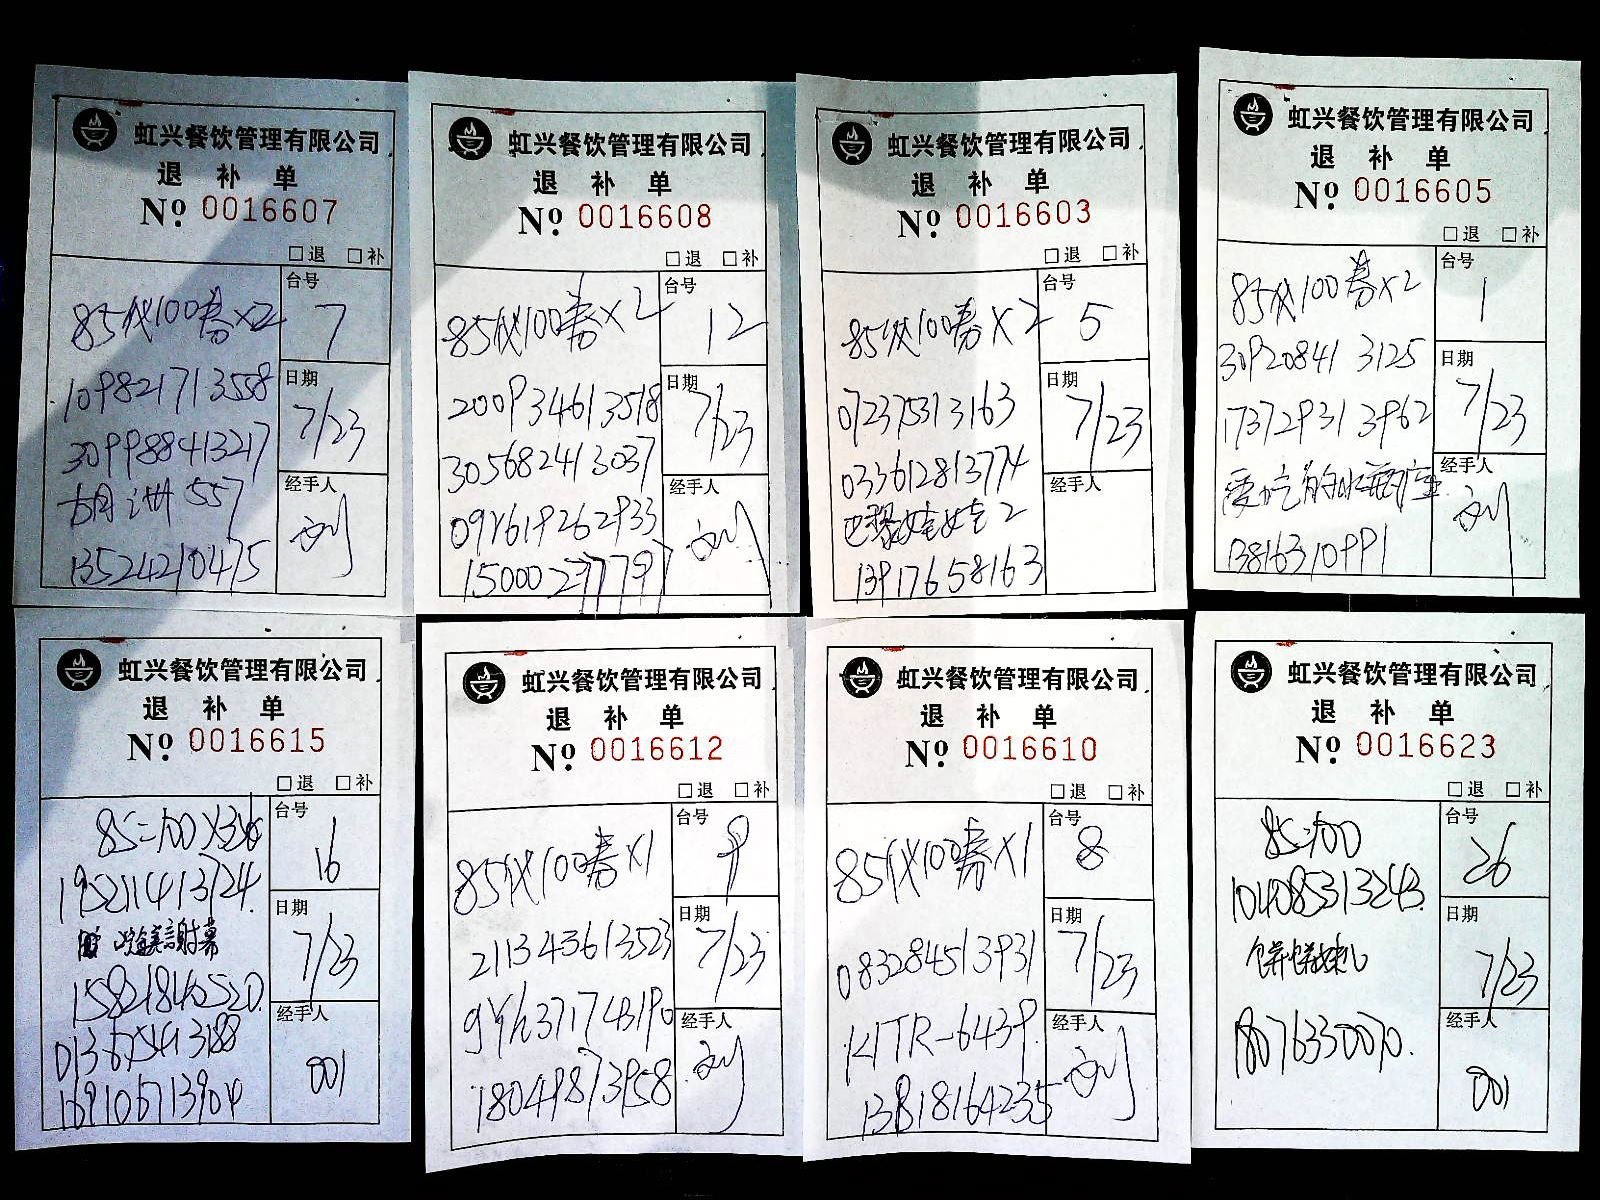 虹兴餐饮管理有限公司
退 补 单
No. 0016607
□退 □补
85代100券×2
台号
7
109821713558
日期
7/23
309988413217
经手人
刘
13524210475
虹兴餐饮管理有限公司
退 补 单
No. 0016608
□退 □补
85代100券×2
台号
12
200934613518
日期
7/23
305682413037
经手人
刘
虹兴餐饮管理有限公司
退 补 单
No. 0016603
□退 □补
85代100券×2
台号
5
072375313163
日期
7/23
033612813774
经手人
13917658163
虹兴餐饮管理有限公司
退 补 单
No. 0016605
□退 □补
85代100券×2
台号
1
30920841 3125
日期
7/23
173729313962
经手人
刘
13816310991
虹兴餐饮管理有限公司
退 补 单
No. 0016615
□退 □补
台号
16
195211413724.
日期
7/23
经手人
001
虹兴餐饮管理有限公司
退 补 单
No. 0016612
□退 □补
85代100券×1
台号
9
211343613523
日期
7/23
经手人
刘
18049873958
虹兴餐饮管理有限公司
退 补 单
No. 0016610
□退 □补
85代100券×1
台号
8
083284513931
日期
7/23
KITR-6439.
经手人
刘
13818164235
虹兴餐饮管理有限公司
退 补 单
No. 0016623
□退 □补
85=100
台号
26
104085313243.
日期
7/23
18076330070.
经手人
001